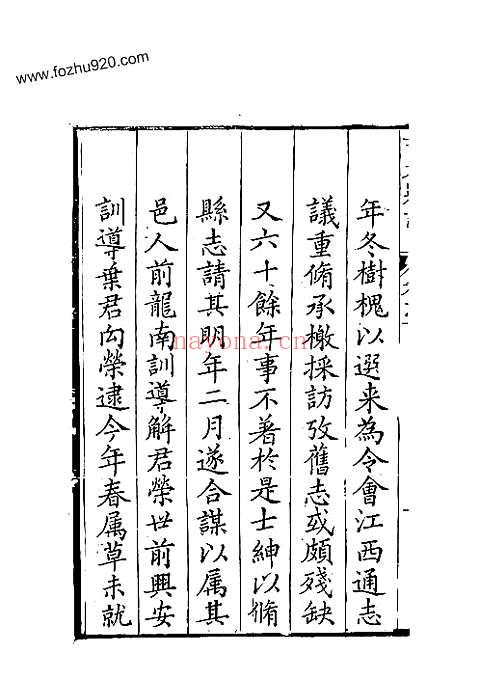 www.fozhu920.com
年冬樹槐以選来為令會江西通志
議重脩承檄採訪攷舊志或頗殘缺
又六十餘年事不著於是士紳以脩
縣志請其明年二月遂合謀以属其
邑人前龍南訓導解君榮世前興安
訓導葉君向榮逮今年春属草未就
nayona.cn